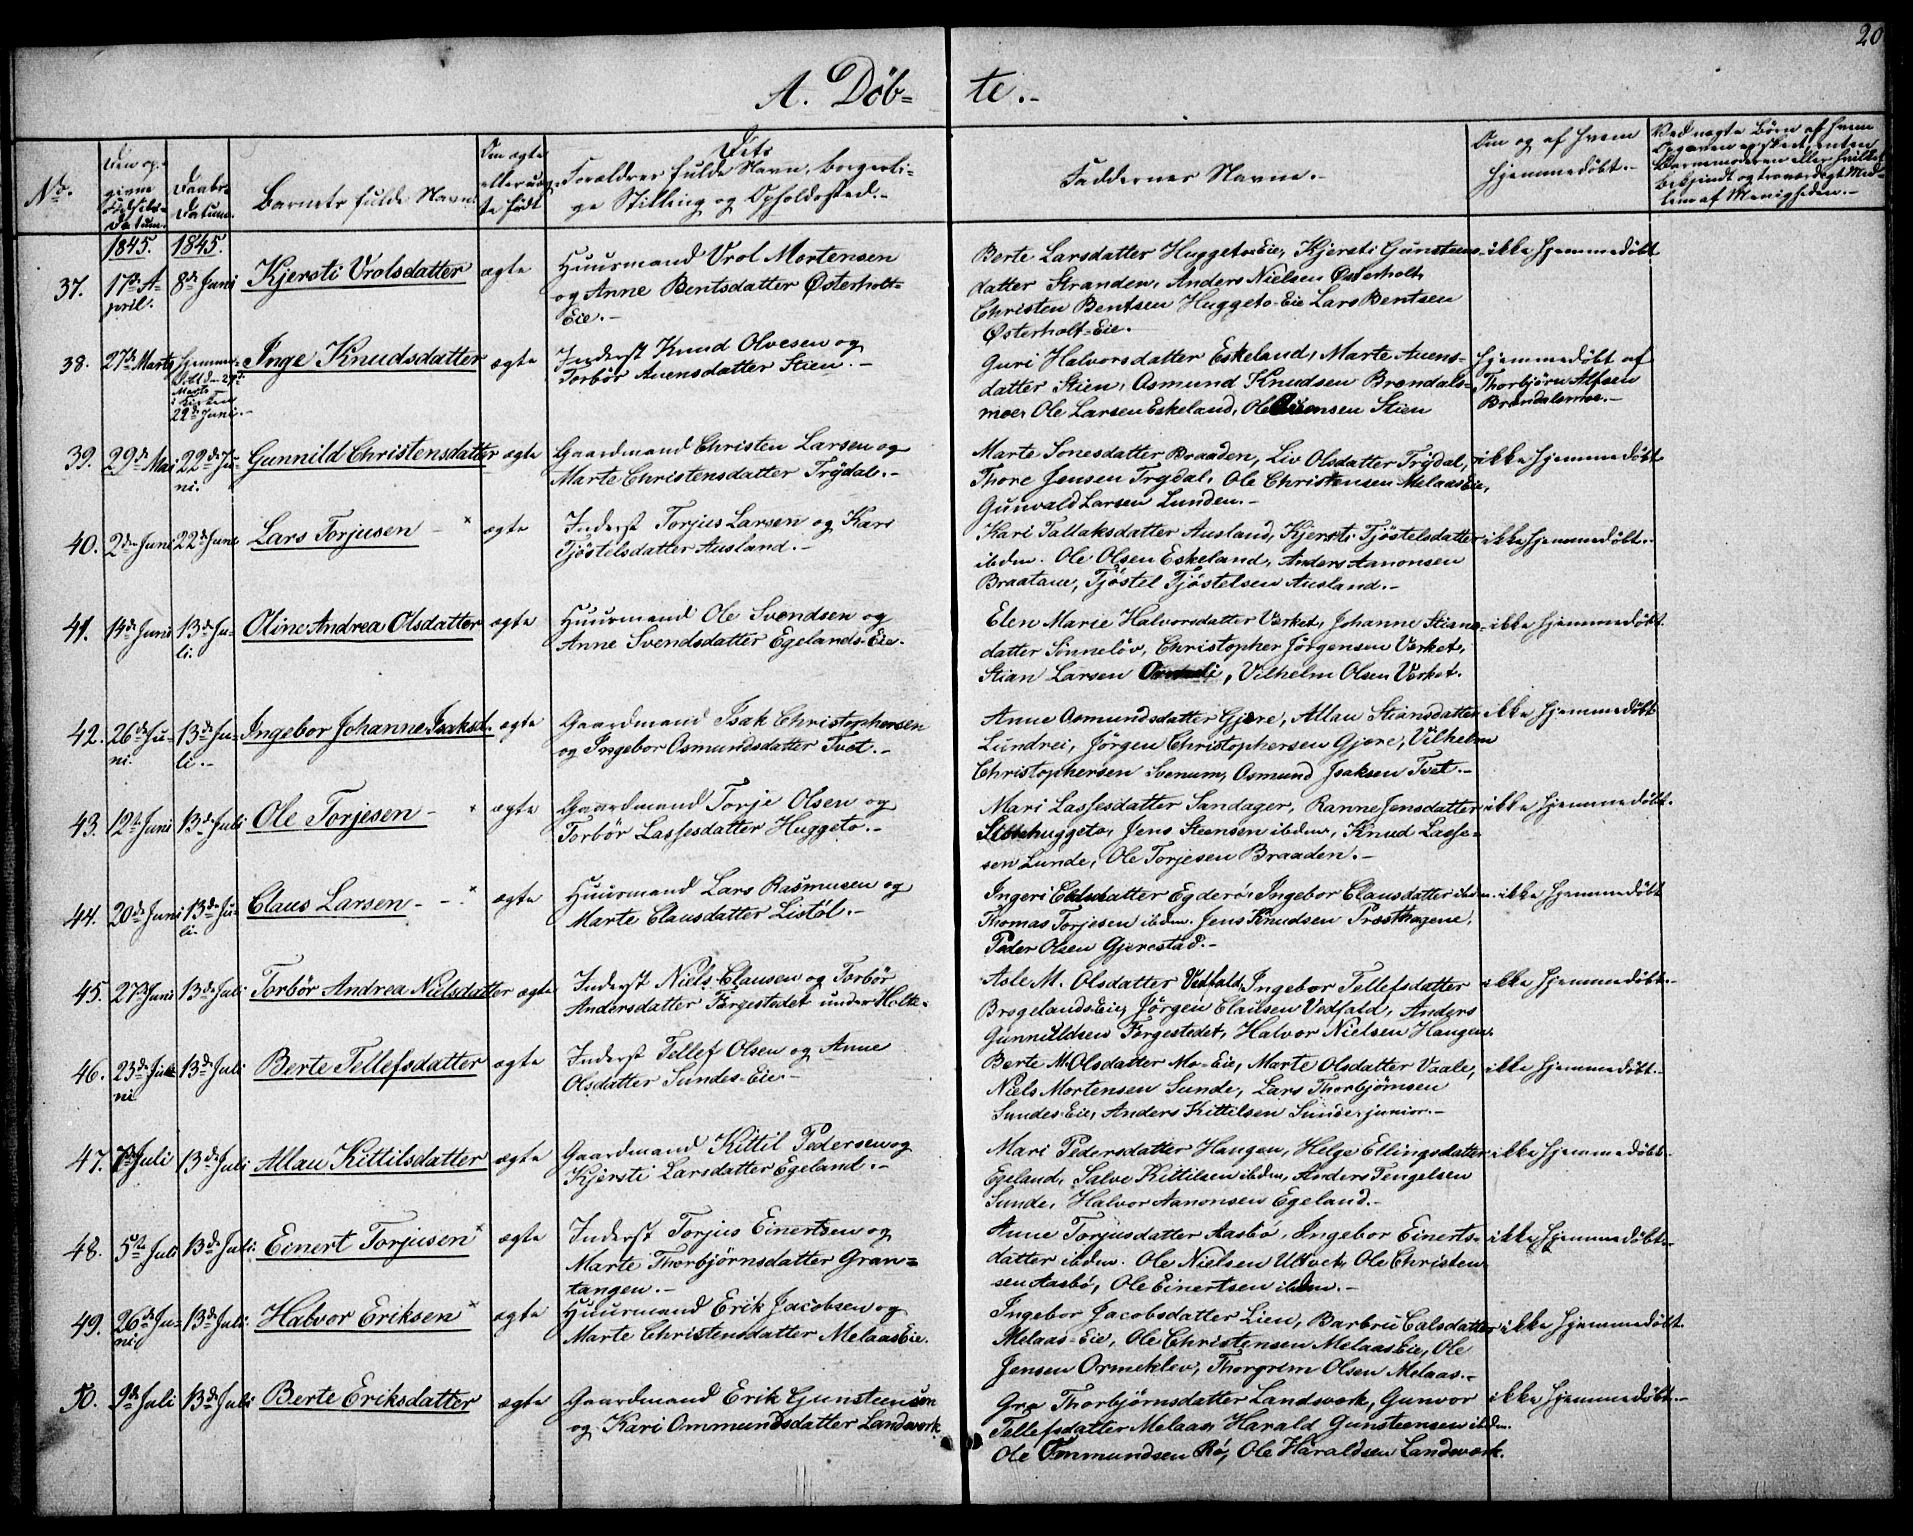 20
A. Døb= te.-
No.
Den op-
givne
Fødsels-
Datum.
Daabs-
Datum.
Barnets fulde Navn.
Om ægte
eller uæg-
te født
Dets
Forældres fulde Navn, borgerli-
ge Stilling og Opholdssted.-
Faddernes Navne.-
Om og af hvem
hjemmedøbt.-
Ved uægte Børn af hvem
Opgaven er skeet, enten
Barnemoderen eller hvilket
bekjendt og troværdigt Med-
lem af Menigheden.-
1845. 1845.
37. 17de A-
pril. 8de Juni Kjersti Vrolsdatter ægte Huusmand Vrol Mortensen
og Anne Bentsdatter Østerholt-
Eie.-
Berte Larsdatter Huggeto-Eie, Kjersti Gunsteens-
datter Stranden, Anders Nielsen Østerholt,
Christen Bentsen Huggeto-Eie Lars Bentsen
Østerholt-Eie.
ikke hjemmedøbt
38. 27de Marts Hjemme-
døbt d. 29de
Marts
i Kirken
22de Juni.- Inge Knudsdatter ægte Inderst Knud Olvesen og
Torbör Auensdatter Stien.-
Guri Halvorsdatter Eskeland, Marte Auens-
datter Stien, Osmund Knudsen Brændals-
moe, Ole Larsen Eskeland, Ole Auensen Stien
hjemmedøbt af
Thorbjörn Alfsen
Brændalsmoe.-
39. 29de Mai 22de Ju-
ni. Gunnild Christensdatter ægte Gaardmand Christen Larsen og
Marte Christensdatter Trydal.-
Marte Sonesdatter Braaden, Liv Olsdatter Trydal,
Thore Jensen Trydal, Ole Christensen Melaas Eie,
Gunvald Larsen Lunden.-
ikke hjemmedøbt
40. 2den Juni 22de Juni Lars Torjusen - x ægte Inderst Torjus Larsen og Kari
Tjöstelsdatter Ausland.-
Kari Tallaksdatter Ausland, Kjersti Tjöstelsdatter
ibdm. Ole Olsen Eskeland, Anders Aanonsen
Braatane, Tjöstel Tjöstelsen Ausland.-
ikke hjemmedøbt.-
41. 14de Juni 13de Ju-
li. Oline Andrea Olsdatter ægte Huusmand Ole Svendsen og
Anne Svendsdatter Egelands-Eie.
Elen Marie Halvorsdatter Værket, Johanne Stians-
datter Sönnelöv, Christopher Jörgensen Værket,
Stian Larsen , Vilhelm Olsen Værket.
ikke hjemmedøbt
42. 26de Ju-
ni. 13de Ju-
li.- Ingebor Johanne Isaksd. ægte Gaardmand Isak Christophersen
og Ingebor Osmundsdatter Tvet.-
Anne Osmundsdatter Gjere, Allau Stiansdatter
Lundrei, Jörgen Christophersen Gjere, Vilhelm
Christophersen Svenum, Osmund Isaksen Tvet.-
ikke hjemmedøbt
43. 12te Juni 13de Juli Ole Torjesen - x ægte Gaardmand Torje Olsen og
Torbör Lassesdatter Huggeto.-
Mari Lassesdatter Sandager, Ranne Jensdatter
Huggeto, Jens Steensen ibdm, Knud Lasse-
sen Lunde, Ole Torjesen Braaden.-
ikke hjemmedøbt.
44. 20de Juni 13de Ju-
li. Claus Larsen - - x ægte Huusmand Lars Rasmusen og
Marte Clausdatter Listöl.-
Ingeri Clausdatter Egderö, Ingebor Clausdatter ibdm.
Thomas Torjesen ibdm. Jens Knudsen Præsthagene,
Peder Olsen Gjerestad.-
ikke hjemmedøbt
45. 27de Juni 13de Juli Torbör Andrea Nielsdatter ægte Inderst Niels Clausen og Torbör
Andersdatter Færgestedet under Holte.
Asle M. Olsdatter Vedfald, Ingebor Tellefsdatter
Brøgelands Eie, Jörgen Clausen Vedfald, Anders
Gunnildsen Færgestedet, Halvor Nielsen Haugen.
ikke hjemmedøbt.-
46. 23de Ju-
ni 13de Juli Berte Tellefsdatter ægte Inderst Tellef Olsen og Anne
Olsdatter Sundes-Eie.-
Berte M. Olsdatter Mo-Eie, Marte Olsdatter Vaale,
Niels Mortensen Sunde, Lars Thorbjörnsen
Sundes Eie, Anders Kittilsen Sunde junior.-
ikke hjemmedøbt.-
47. Juli 13de Juli Allau Kittilsdatter ægte Gaardmand Kittil Pedersen og
Kjersti Larsdatter Egeland.-
Mari Pedersdatter Haugen, Helge Ellingsdatter
Egeland, Salve Kittilsen ibdm, Anders Tengelsen
Sunde, Halvor Aanonsen Egeland.-
ikke hjemmedøbt
48. 5te Juli 13de Juli. Einert Torjusen x ægte Inderst Torjus Einertsen og
Marte Thorbjørnsdatter Gran=
tangen.-
Anne Torjusdatter Aasbö, Ingebor Einerts-
datter ibdm. Ole Nielsen Ulltvet, Ole Christen
sen Aasbö, Ole Einertsen ibdm.-
ikke hjemmedøbt.-
49. 26de Ju-
ni 13de Juli. Halvor Eriksen x ægte Huusmand Erik Jacobsen og
Marte Christensdatter Melaas Eie.
Ingebor Jacobsdatter Lien, Barbru Calsdatter
Melaas-Eie, Ole Christensen Melaas Eie, Ole
Jensen Ormeklev, Thorgrim Olsen Melaas.-
ikke hjemmedøbt.
50. 9de Juli 13de Juli Berte Eriksdatter ægte Gaardmand Erik Gunsteensen
og Kari Ommundsdatter Landsværk
Gro Thorbjørnsdatter Landsværk, Gunvor
Tellefsdatter Melaas, Harald Gunsteensen ibdm.
Ole Ommundsen Rö, Ole Haraldsen Landsværk.
ikke hjemmedøbt.-